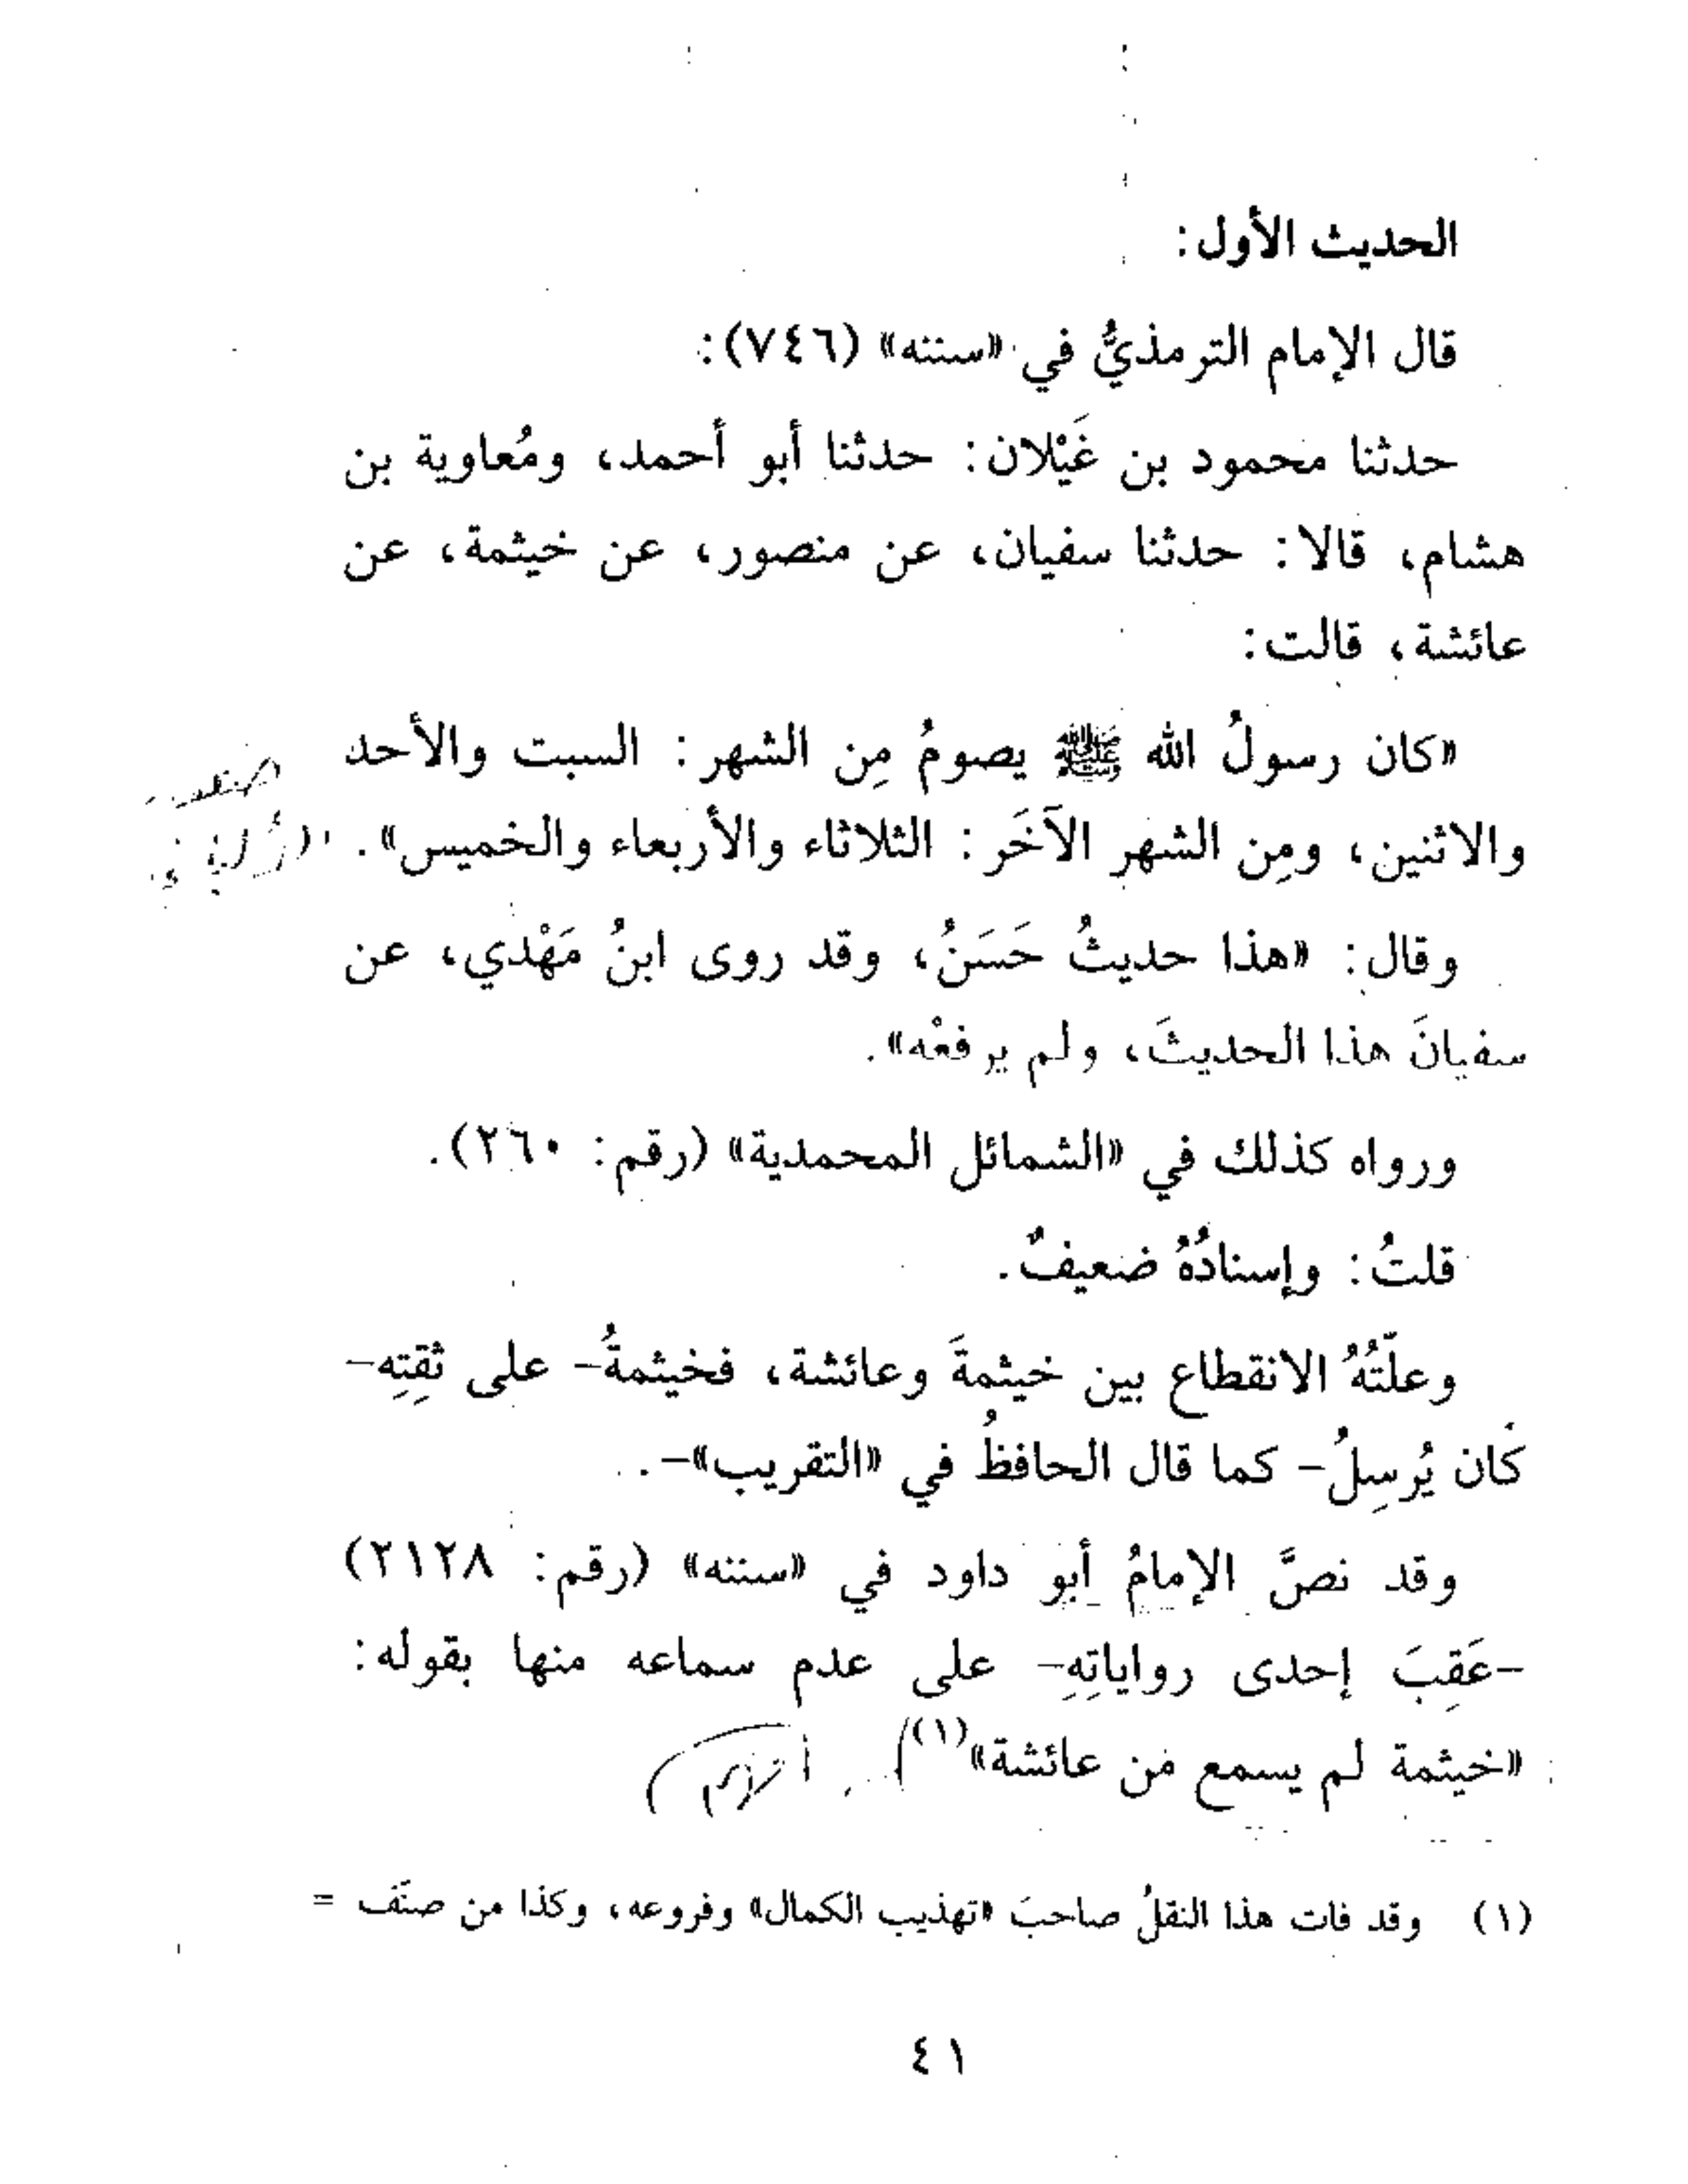 الحديث الأول:
قال الإمام الترمذيُّ في «سننه» (٧٤٦):
حدثنا محمود بن غَيْلان: حدثنا أبو أحمد، ومُعاوية بن
هشام، قالا: حدثنا سفيان، عن منصور، عن خيثمة، عن
عائشة، قالت:
«كان رسولُ الله ﷺ يصومُ مِن الشهر: السبت والأحد
والاثنين، ومِن الشهر الآخَر: الثلاثاء والأربعاء والخميس».
وقال: «هذا حديثُ حَسَنُ، وقد روى ابنُ مَهْدي، عن
سفيانَ هذا الحديثَ، ولم يرفعْه».
ورواه كذلك في «الشمائل المحمدية» (رقم: ٢٦٠).
قلتُ: وإسنادُهُ ضعيفٌ.
وعلّتُهُ الانقطاع بين خيثمةَ وعائشة، فخيثمةُ- على ثقِتِه-
كان يُرسِلُ- كما قال الحافظُ في «التقريب»-..
وقد نصَّ الإمامُ أبو داود في «سننه» (رقم: ٢١٢٨)
-عَقِبَ إحدى رواياتِهِ- على عدم سماعه منها بقوله:
«خيثمة لم يسمع من عائشة»(١)
(١) وقد فات هذا النقلُ صاحبَ «تهذيب الكمال» وفروعه، وكذا من صنّف =
٤١